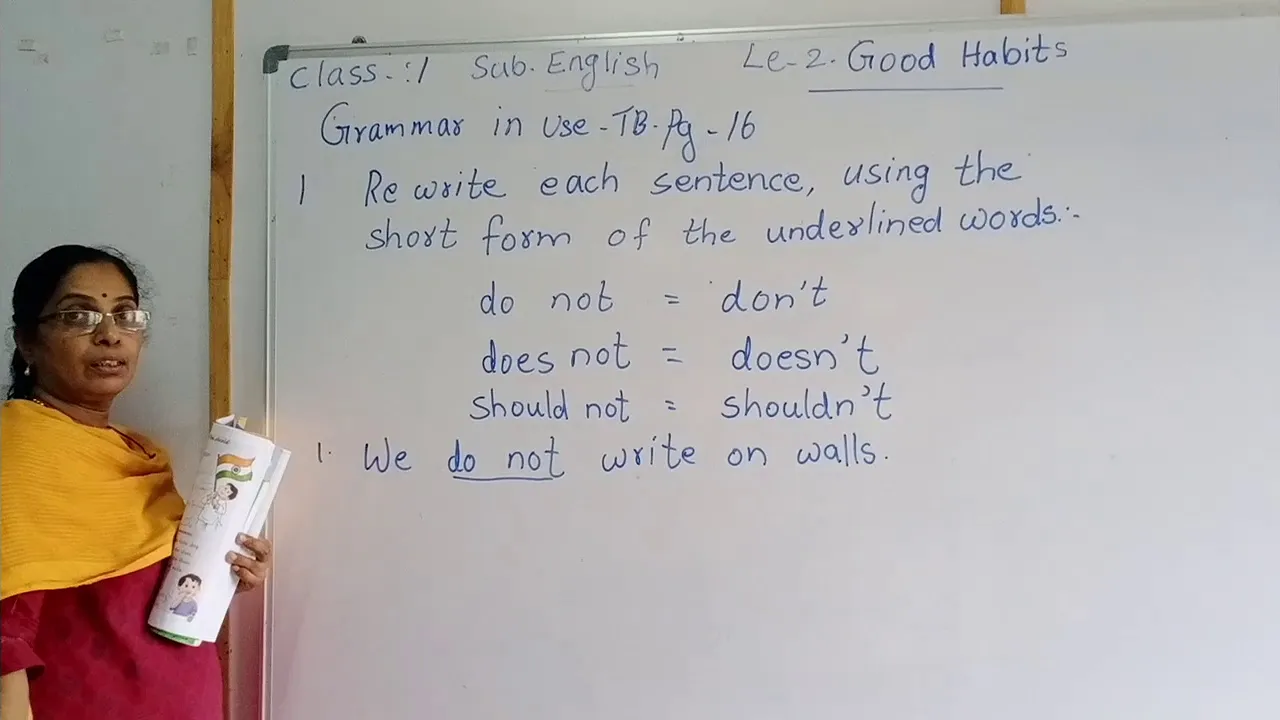 Class-:1 Sub. English Le-2. Good Habits
Grammar in use-TB.Pg-16
1 Rewrite each sentence, using the
short form of the underlined words:-
do not = don't
does not = doesn't
should not = shouldn't
1. We do not write on walls.